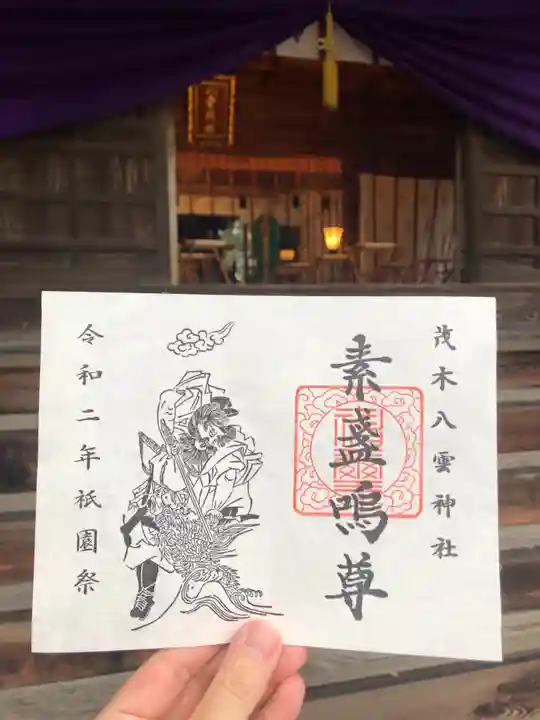 茂木八雲神社
素盞嗚尊
令和二年祇園祭